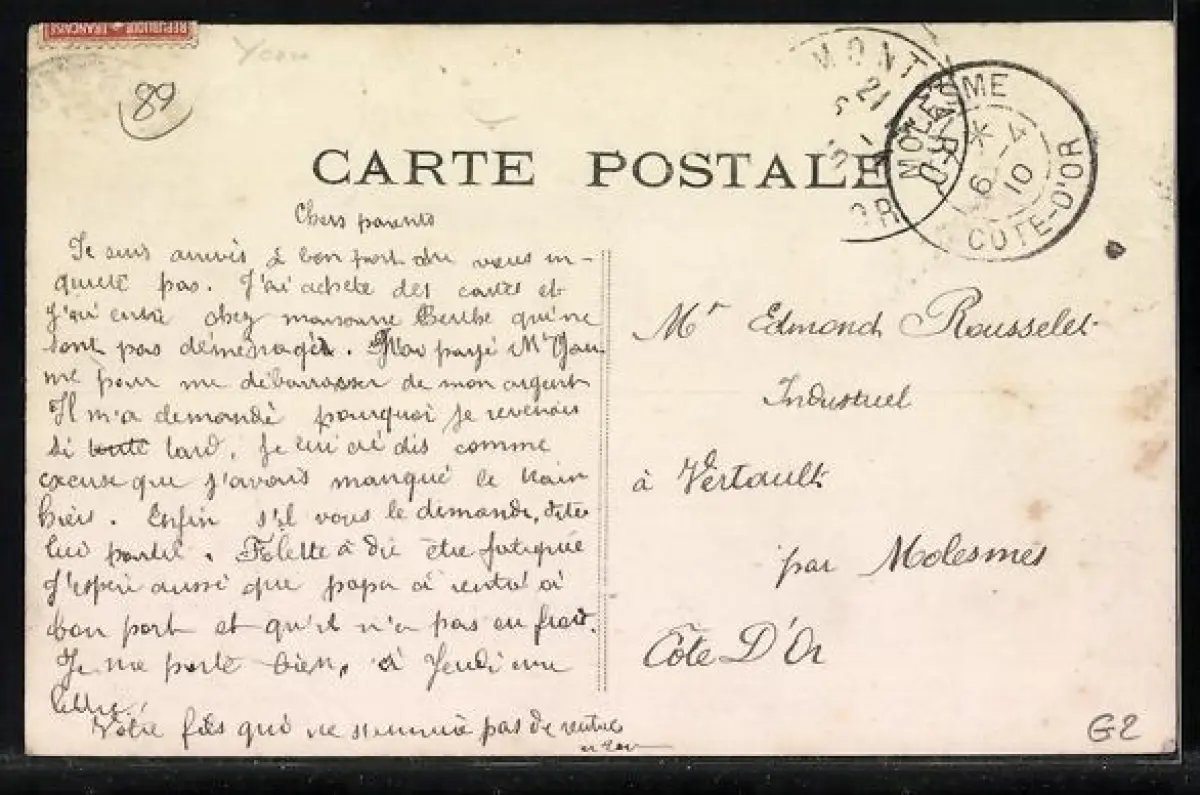 REPUBLIQUE FRANÇAISE
Yonne
89
CARTE POSTALE
MONT
21
OR
MOLESME
* 
6 - 4
10
COTE-D'OR
Chers parents
Je suis arrivés à bon port du vous in-
quiete pas. J'ai achete des cartes et
j'ai entré chez Berthe qui ne
sont pas déménagés. J'ai payé Mr
me pour me débarrasser de mon argent
Il m'a demandé pourquoi je revenais
si toute tard, je lui ai dis comme
excuse que j'avais manqué le train
hiers. Enfin s'il vous le demande, dite
lui pareil. Folette à du être fatiguée
J'espère aussi que papa à rentré à
bon port et qu'il n'a pas eu froid.
Je me porte bien, à Jeudi une
lettre.
Votre fils qui ne s'ennuie pas de rentrer
Mr Edmond Rousselet
Industriel
à Vertault
par Molesmes
Côte D'Or
G2